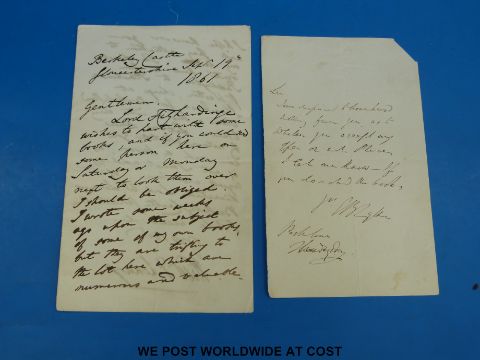 Berkeley Castle
Gloucestershire Sept 19th
1861
Gentlemen,
Lord Fitzhardinge
wishes to part with some
books, and if you could send
some person here on
Saturday or Monday
next to look them over
I should be obliged.
I wrote some weeks
ago upon the subject
of some of my own books,
but they are trifling to
the lot here which are
numerous and valuable.
Sir
from you as to
whether you accept my
offer or not. Please
let me know if
you do send the books
Yrs
WE POST WORLDWIDE AT COST